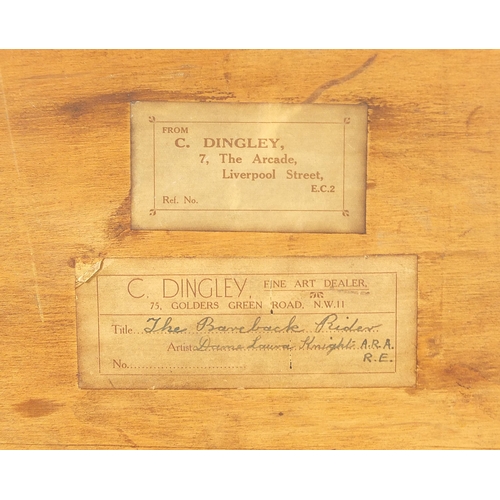 FROM
C. DINGLEY,
7, The Arcade,
Liverpool Street,
E.C.2
Ref. No.
C. DINGLEY, FINE ART DEALER,
75, GOLDERS GREEN ROAD, N.W.11
Title The Bareback Rider
Artist Dame Laura Knight A.R.A.
R.E.
No.